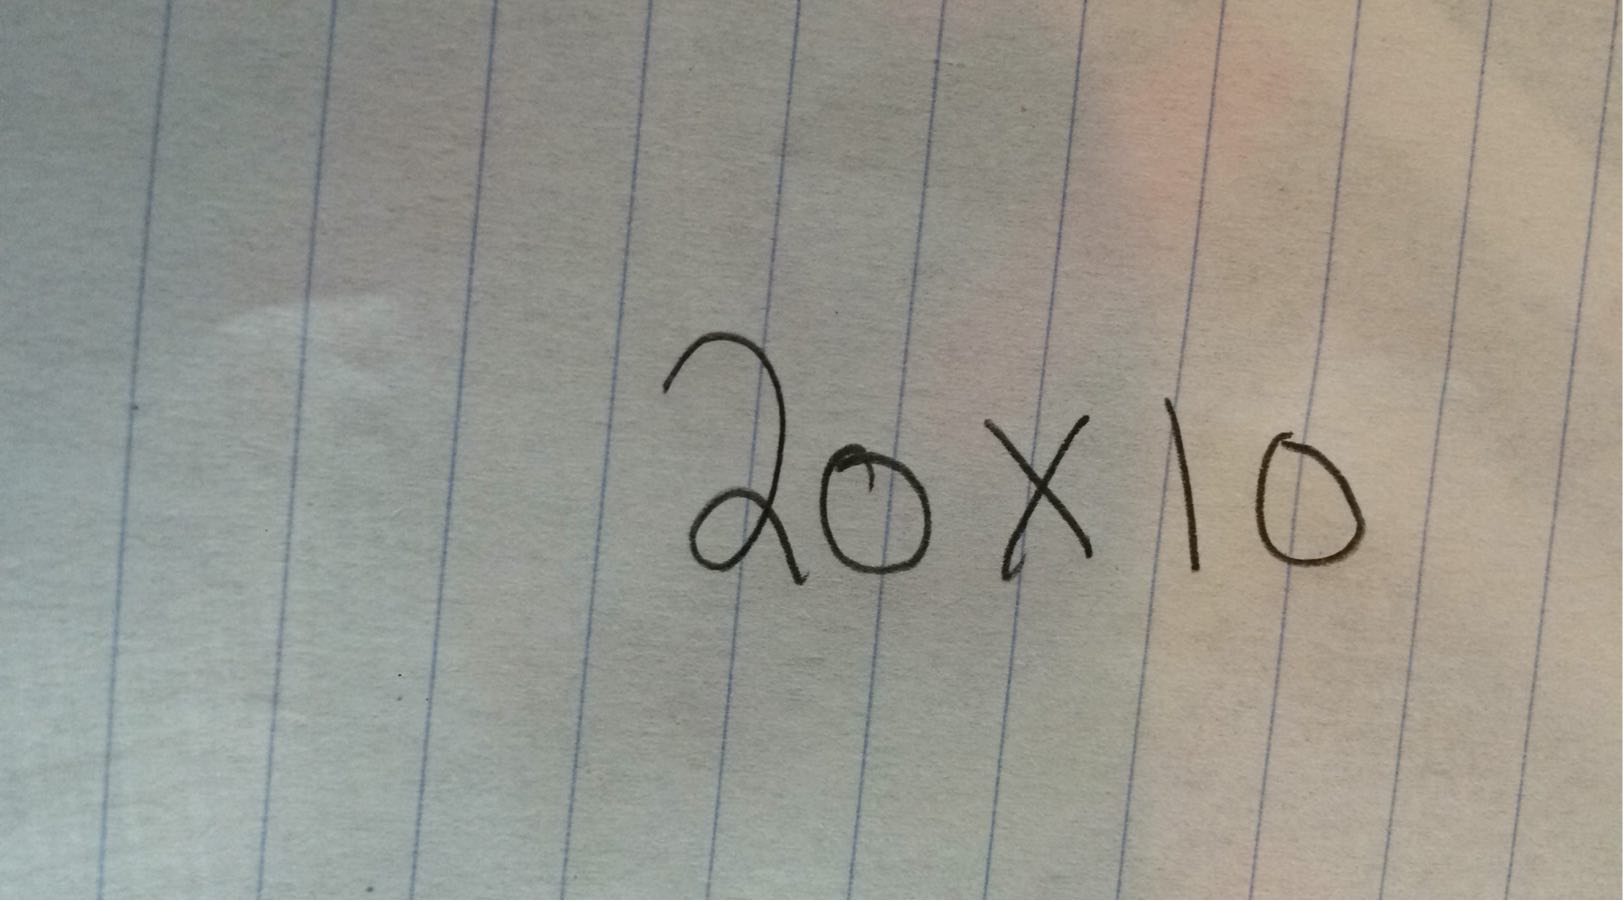 20 x 10